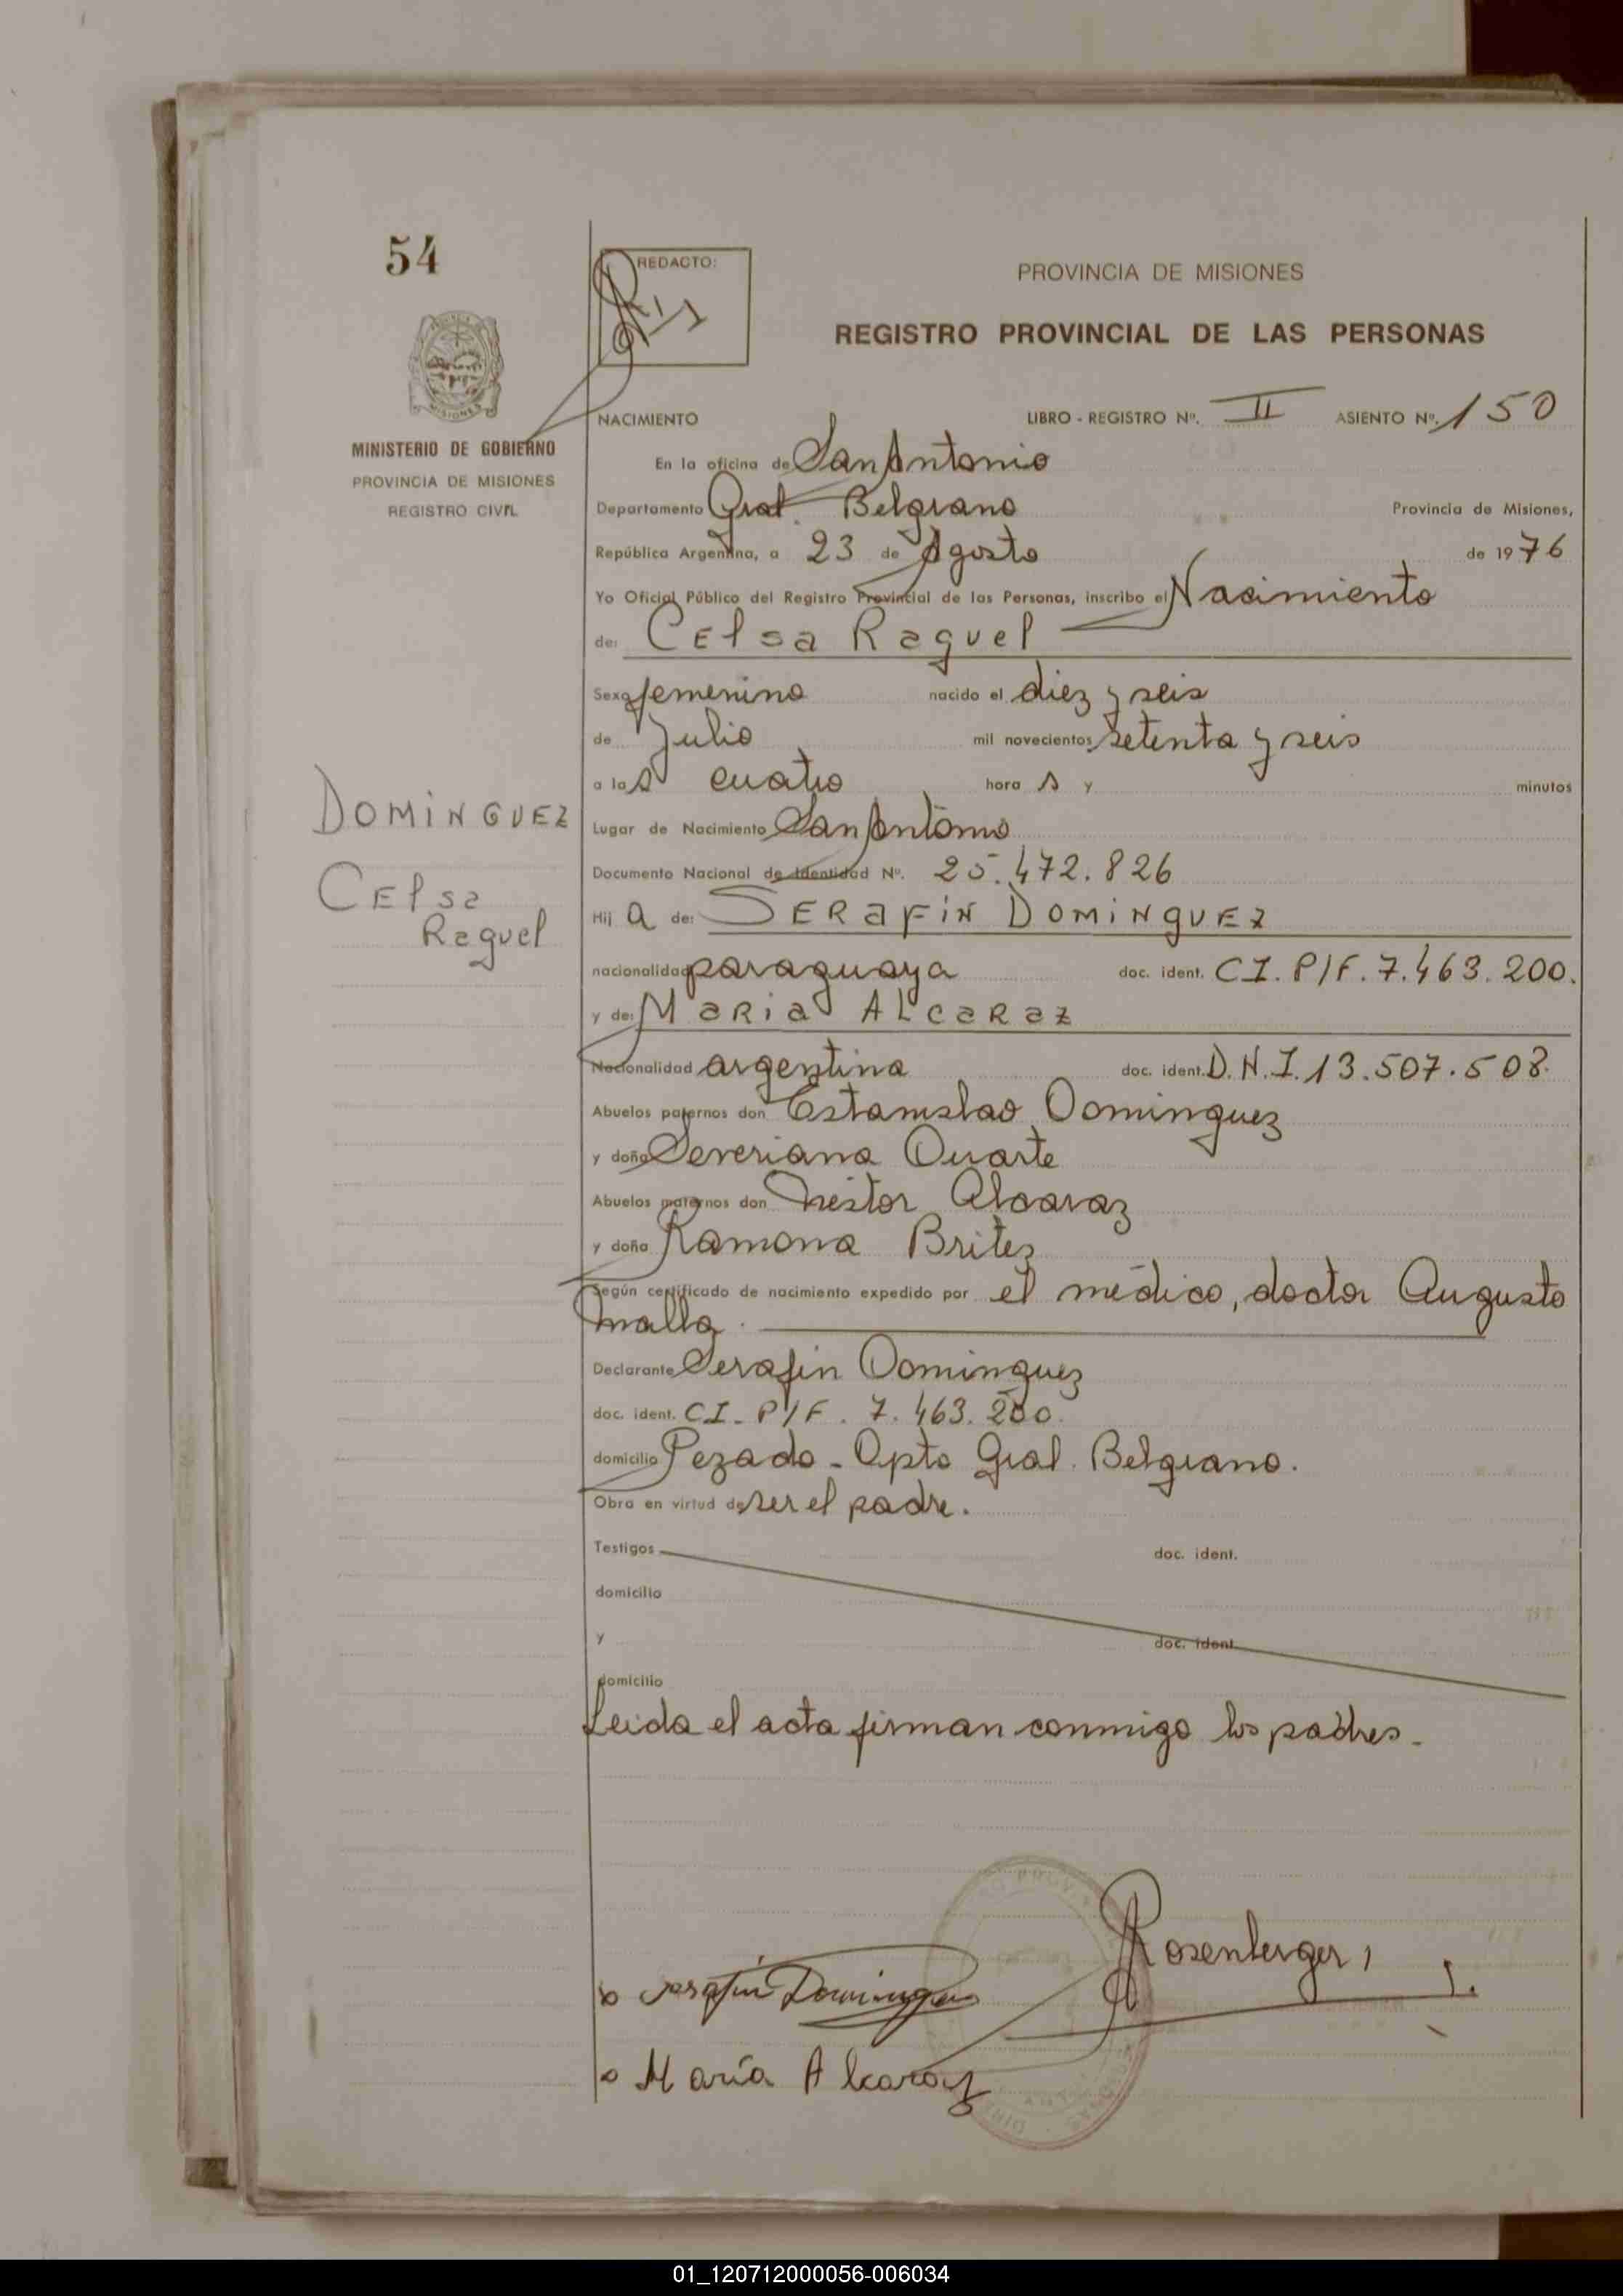 54
REDACTO:
PROVINCIA DE MISIONES
REGISTRO PROVINCIAL DE LAS PERSONAS
MINISTERIO DE GOBIERNO
PROVINCIA DE MISIONES
REGISTRO CIVIL
NACIMIENTO LIBRO - REGISTRO Nº. II ASIENTO Nº. 150
En la oficina de San Antonio
Departamento Gral. Belgrano Provincia de Misiones,
República Argentina, a 23 de Agosto de 1976
Yo Oficial Público del Registro Provincial de las Personas, inscribo el Nacimiento
de: Celsa Raquel
Sexo femenino nacido el diez y seis
de Julio mil novecientos setenta y seis
a las cuatro hora s y minutos
DOMINGUEZ
Celsa
Raquel
Lugar de Nacimiento San Antonio
Documento Nacional de Identidad Nº. 25.472.826
Hij a de: SERAFIN DOMINGUEZ
nacionalidad paraguaya doc. ident. CI. P/F. 7.463.200.
y de: MARIA ALCARAZ
Nacionalidad argentina doc. ident. D.N.I. 13.507.508.
Abuelos paternos don Estanislao Dominguez
y doña Severiana Duarte
Abuelos maternos don Nestor Alcaraz
y doña Ramona Britez
Según certificado de nacimiento expedido por el médico, doctor Augusto
Malla.
Declarante Serafin Dominguez
doc. ident. CI. P/F. 7.463.200.
domicilio Pezado - Dpto Gral. Belgrano.
Obra en virtud de ser el padre.
Testigos doc. ident.
domicilio
y doc. ident.
domicilio
Leida el acta firman conmigo los padres.
Rosenberger, J.
Serafin Dominguez
María Alcaraz
01_120712000056-006034